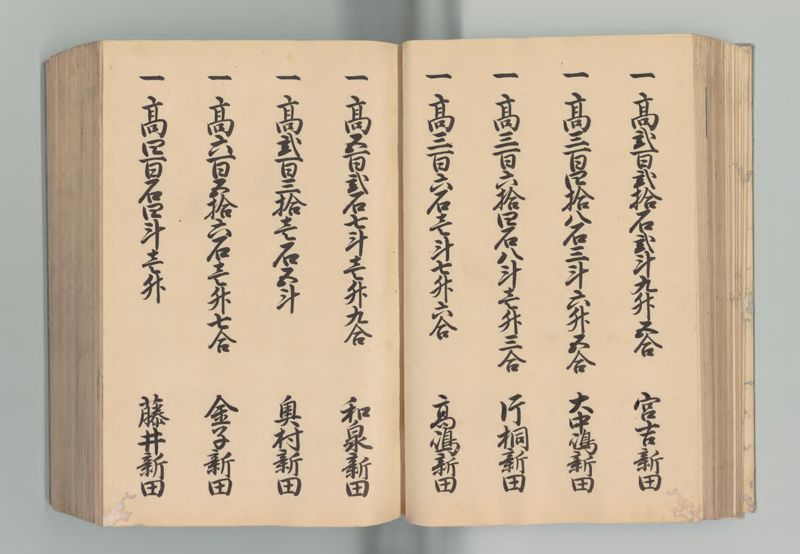 一 高弐百弐拾石弐斗九升五合 宮吉新田
一 高三百四拾八石三斗六升五合 大中嶋新田
一 高三百六拾四石八斗壱升三合 片桐新田
一 高三百六石壱斗七升六合 高嶋新田
一 高五百弐石七斗壱升九合 和泉新田
一 高弐百三拾壱石五斗 奥村新田
一 高六百五拾六石壱升七合 金子新田
一 高四百石四斗壱升 藤井新田